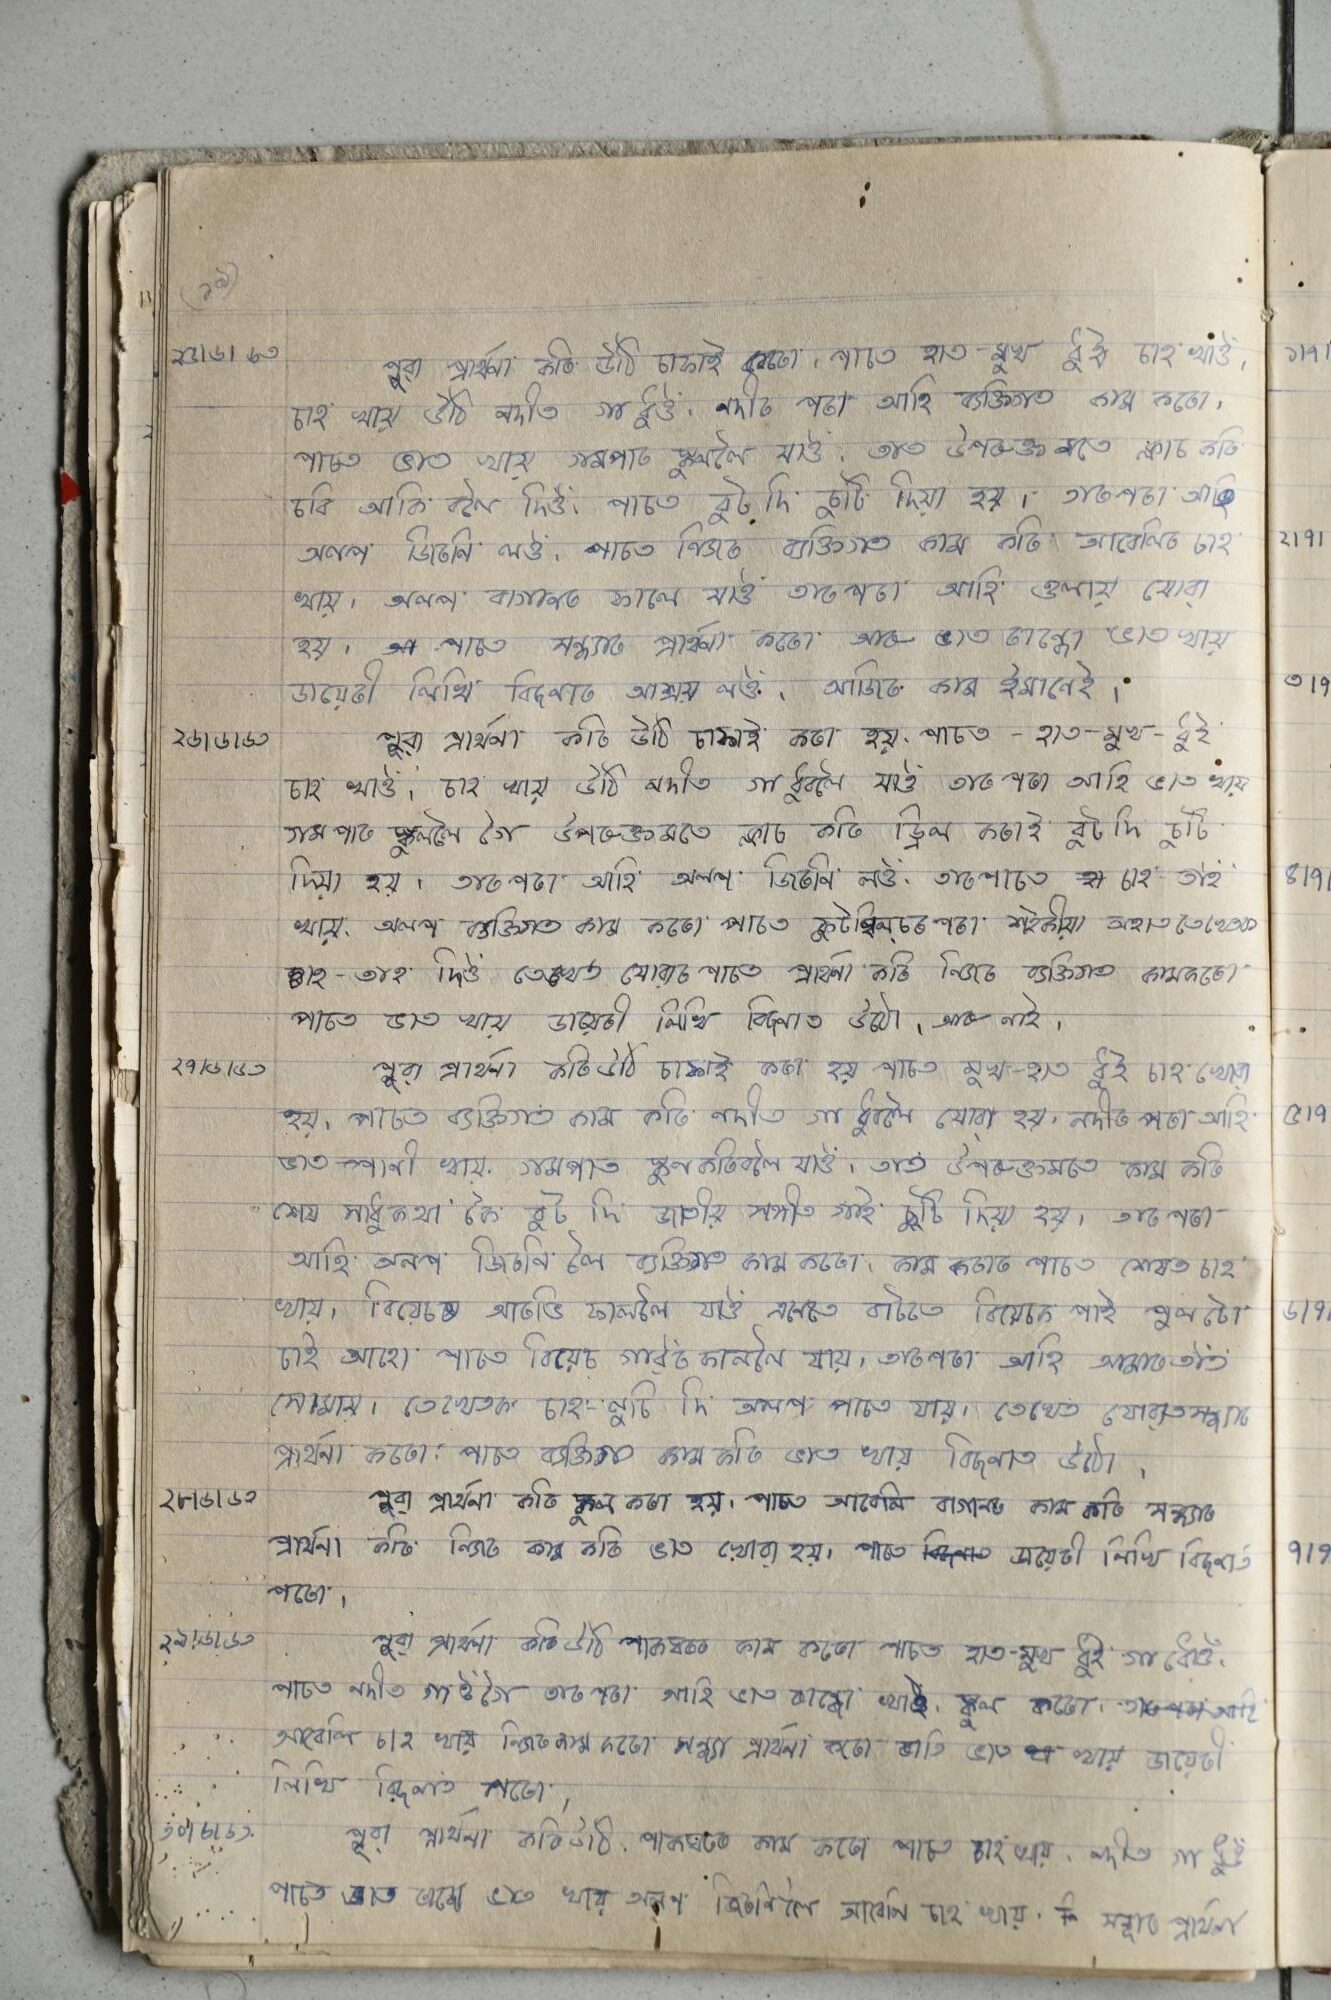 ২৫।৬।৬৩ পুৱা প্ৰাৰ্থনা কৰি উঠি চাফাই কৰো, পাচত হাত-মুখ ধুই চাহ খাওঁ,
চাহ খায় উঠি নদীত গা ধুওঁ. নদীৰ পৰা আহি ব্যক্তিগত কাম কৰো,
পাচত ভাত খায় গমপাত স্কুললৈ যাওঁ, তাত উপৰুক্ত মতে ক্লাচ কৰি
চবি আকি বলৈ দিওঁ. পাচত বুট দি চুটি দিয়া হয়। তাৰপৰা আহি
অলপ জিৰনি লওঁ. পাচত নিজৰ ব্যক্তিগত কাম কৰি আবেলিৰ চাহ
খায়, অলপ বাগানৰ ফালে যাওঁ তাৰপৰা আহি ওলায় যোৱা
হয়, পাচত সন্ধ্যাত প্ৰাৰ্থনা কৰো আৰু ভাত ৰান্ধো ভাত খায়
ডায়েৰী লিখি বিচনাত আশ্ৰয় লওঁ, আজিৰ কাম ইমানেই।
২৬।৬।৬৩ পুৱা প্ৰাৰ্থনা কৰি উঠি চাফাই কৰা হয়. পাচত - হাত-মুখ-ধুই
চাহ খাওঁ, চাহ খায় উঠি নদীত গা ধুবলৈ যাওঁ তাৰ পৰা আহি ভাত খায়
গমপাত স্কুললৈ গৈ উপৰুক্তমতে ক্লাচ কৰি ড্ৰিল কৰাই বুট দি চুটি
দিয়া হয়। তাৰপৰা আহি অলপ জিৰনি লওঁ. তাৰপাচত চাহ-তাহ
খায়. অলপ ব্যক্তিগত কাম কৰো পাচত শইকীয়া তেখেতক
চাহ-তাহ দিওঁ তেখেত যোৱাৰ পাচত প্ৰাৰ্থনা কৰি নিজৰ ব্যক্তিগত কামকৰো
পাচত ভাত খায় ডায়েৰী লিখি বিচনাত উঠো, আৰু নাই,
২৭।৬।৬৩ পুৱা প্ৰাৰ্থনা কৰি উঠি চাফাই কৰা হয় পাচত মুখ-হাত ধুই চাহ খোৱা
হয়, পাচত ব্যক্তিগত কাম কৰি নদীত গা ধুবলৈ যোৱা হয়. নদীৰ পৰা আহি
ভাত পানী খায়. গমপাত স্কুল কৰিবলৈ যাওঁ, তাত উপৰুক্তমতে কাম কৰি
শেষ সাধুকথা কৈ বুট দি জাতীয় সঙ্গীত গাই চুটি দিয়া হয়, তাৰ পৰা
আহি অলপ জিৰনি লৈ ব্যক্তিগত কাম কৰো, কাম কৰাৰ পাচত শেষত চাহ
খায়, আৰভি ফাললৈ যাওঁ বাটতে পাই পুলটো
চাই আহো পাচত যায়, তাৰপৰা আহি আমাৰ তাত
সোমায়, তেখেতক চাহ-লুচি দি অলপ পাচত যায়, তেখেত যোৱাত সন্ধ্যাত
প্ৰাৰ্থনা কৰো, পাচত ব্যক্তিগত কাম কৰি ভাত খায় বিচনাত উঠো,
২৮।৬।৬৩ পুৱা প্ৰাৰ্থনা কৰি স্কুল কৰা হয়, পাচত আবেলি বাগানত কাম কৰি সন্ধ্যাত
প্ৰাৰ্থনা কৰি নিজৰ কাম কৰি ভাত খোৱা হয়, পাচত ডায়েৰী লিখি বিচনাত
পৰো,
২৯।৬।৬৩ পুৱা প্ৰাৰ্থনা কৰি উঠি পাকঘৰত কাম কৰো পাচত হাত-মুখ ধুই গা ধোওঁ.
পাচত নদীত তাৰ পৰা আহি ভাত ৰান্ধো খাওঁ, স্কুল কৰো, তাৰ পৰা আহি
আবেলি চাহ খায় নিজৰকাম কৰো সন্ধ্যা প্ৰাৰ্থনা কৰো ৰাতি ভাত খায় ডায়েৰী
লিখি বিচনাত পৰো,
৩০।৬।৬৩ পুৱা প্ৰাৰ্থনা কৰি উঠি. পাকঘৰত কাম কৰো পাচত চাহ খায়, নদীত গা ধুওঁ
পাচত ভাত খায় অলপ জিৰনি লৈ আবেলি চাহ খায়, সন্ধ্যাত প্ৰাৰ্থনা
১।৭।
২।৭।
৩।৭
৪।৭।
৫।৭
৬।৭।
৭।৭